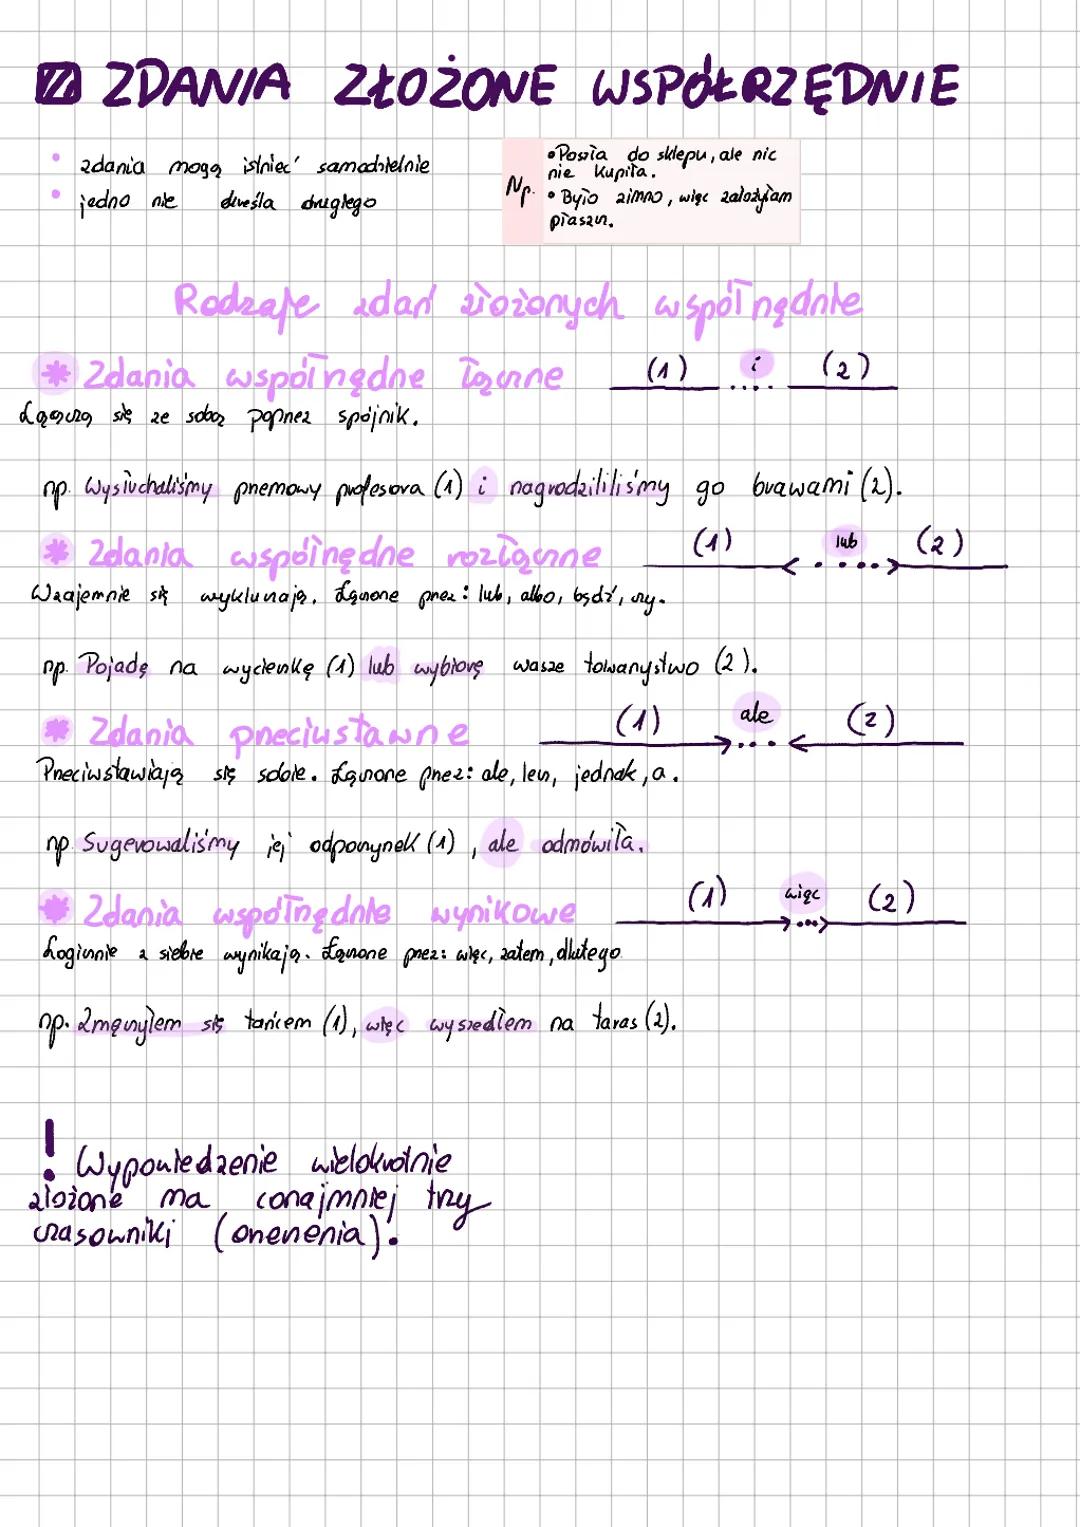 ZDANIA ZŁOŻONE WSPÓŁRZĘDNIE
• zdania mogą istnieć samodzielnie
• jedno nie określa drugiego
Np.
• Poszła do sklepu, ale nic
nie kupiła.
• Było zimno, więc założyłam
płaszcz.
Rodzaje zdań złożonych współrzędnie
* Zdania współrzędne łączne
(1) i (2)
Łączą się ze sobą poprzez spójnik.
np. Wysłuchaliśmy przemowy profesora (1) i nagrodziliśmy go brawami (2).
* Zdania współrzędne rozłączne
(1) lub (2)
Wzajemnie się wykluczają. Łączone przez: lub, albo, bądź, czy.
np. Pojadę na wycieczkę (1) lub wybiorę wasze towarzystwo (2).
* Zdania przeciwstawne
(1) ale (2)
Przeciwstawiają się sobie. Łączone przez: ale, lecz, jednak, a.
np. Sugerowaliśmy jej odpoczynek (1), ale odmówiła.
* Zdania współrzędnie wynikowe
(1) więc (2)
Logicznie z siebie wynikają. Łączone przez: więc, zatem, dlatego
np. Zmęczyłem się tańcem (1), więc wyszedłem na taras (2).
! Wypowiedzenie wielokrotnie
złożone ma conajmniej trzy
czasowniki (orzeczenia).